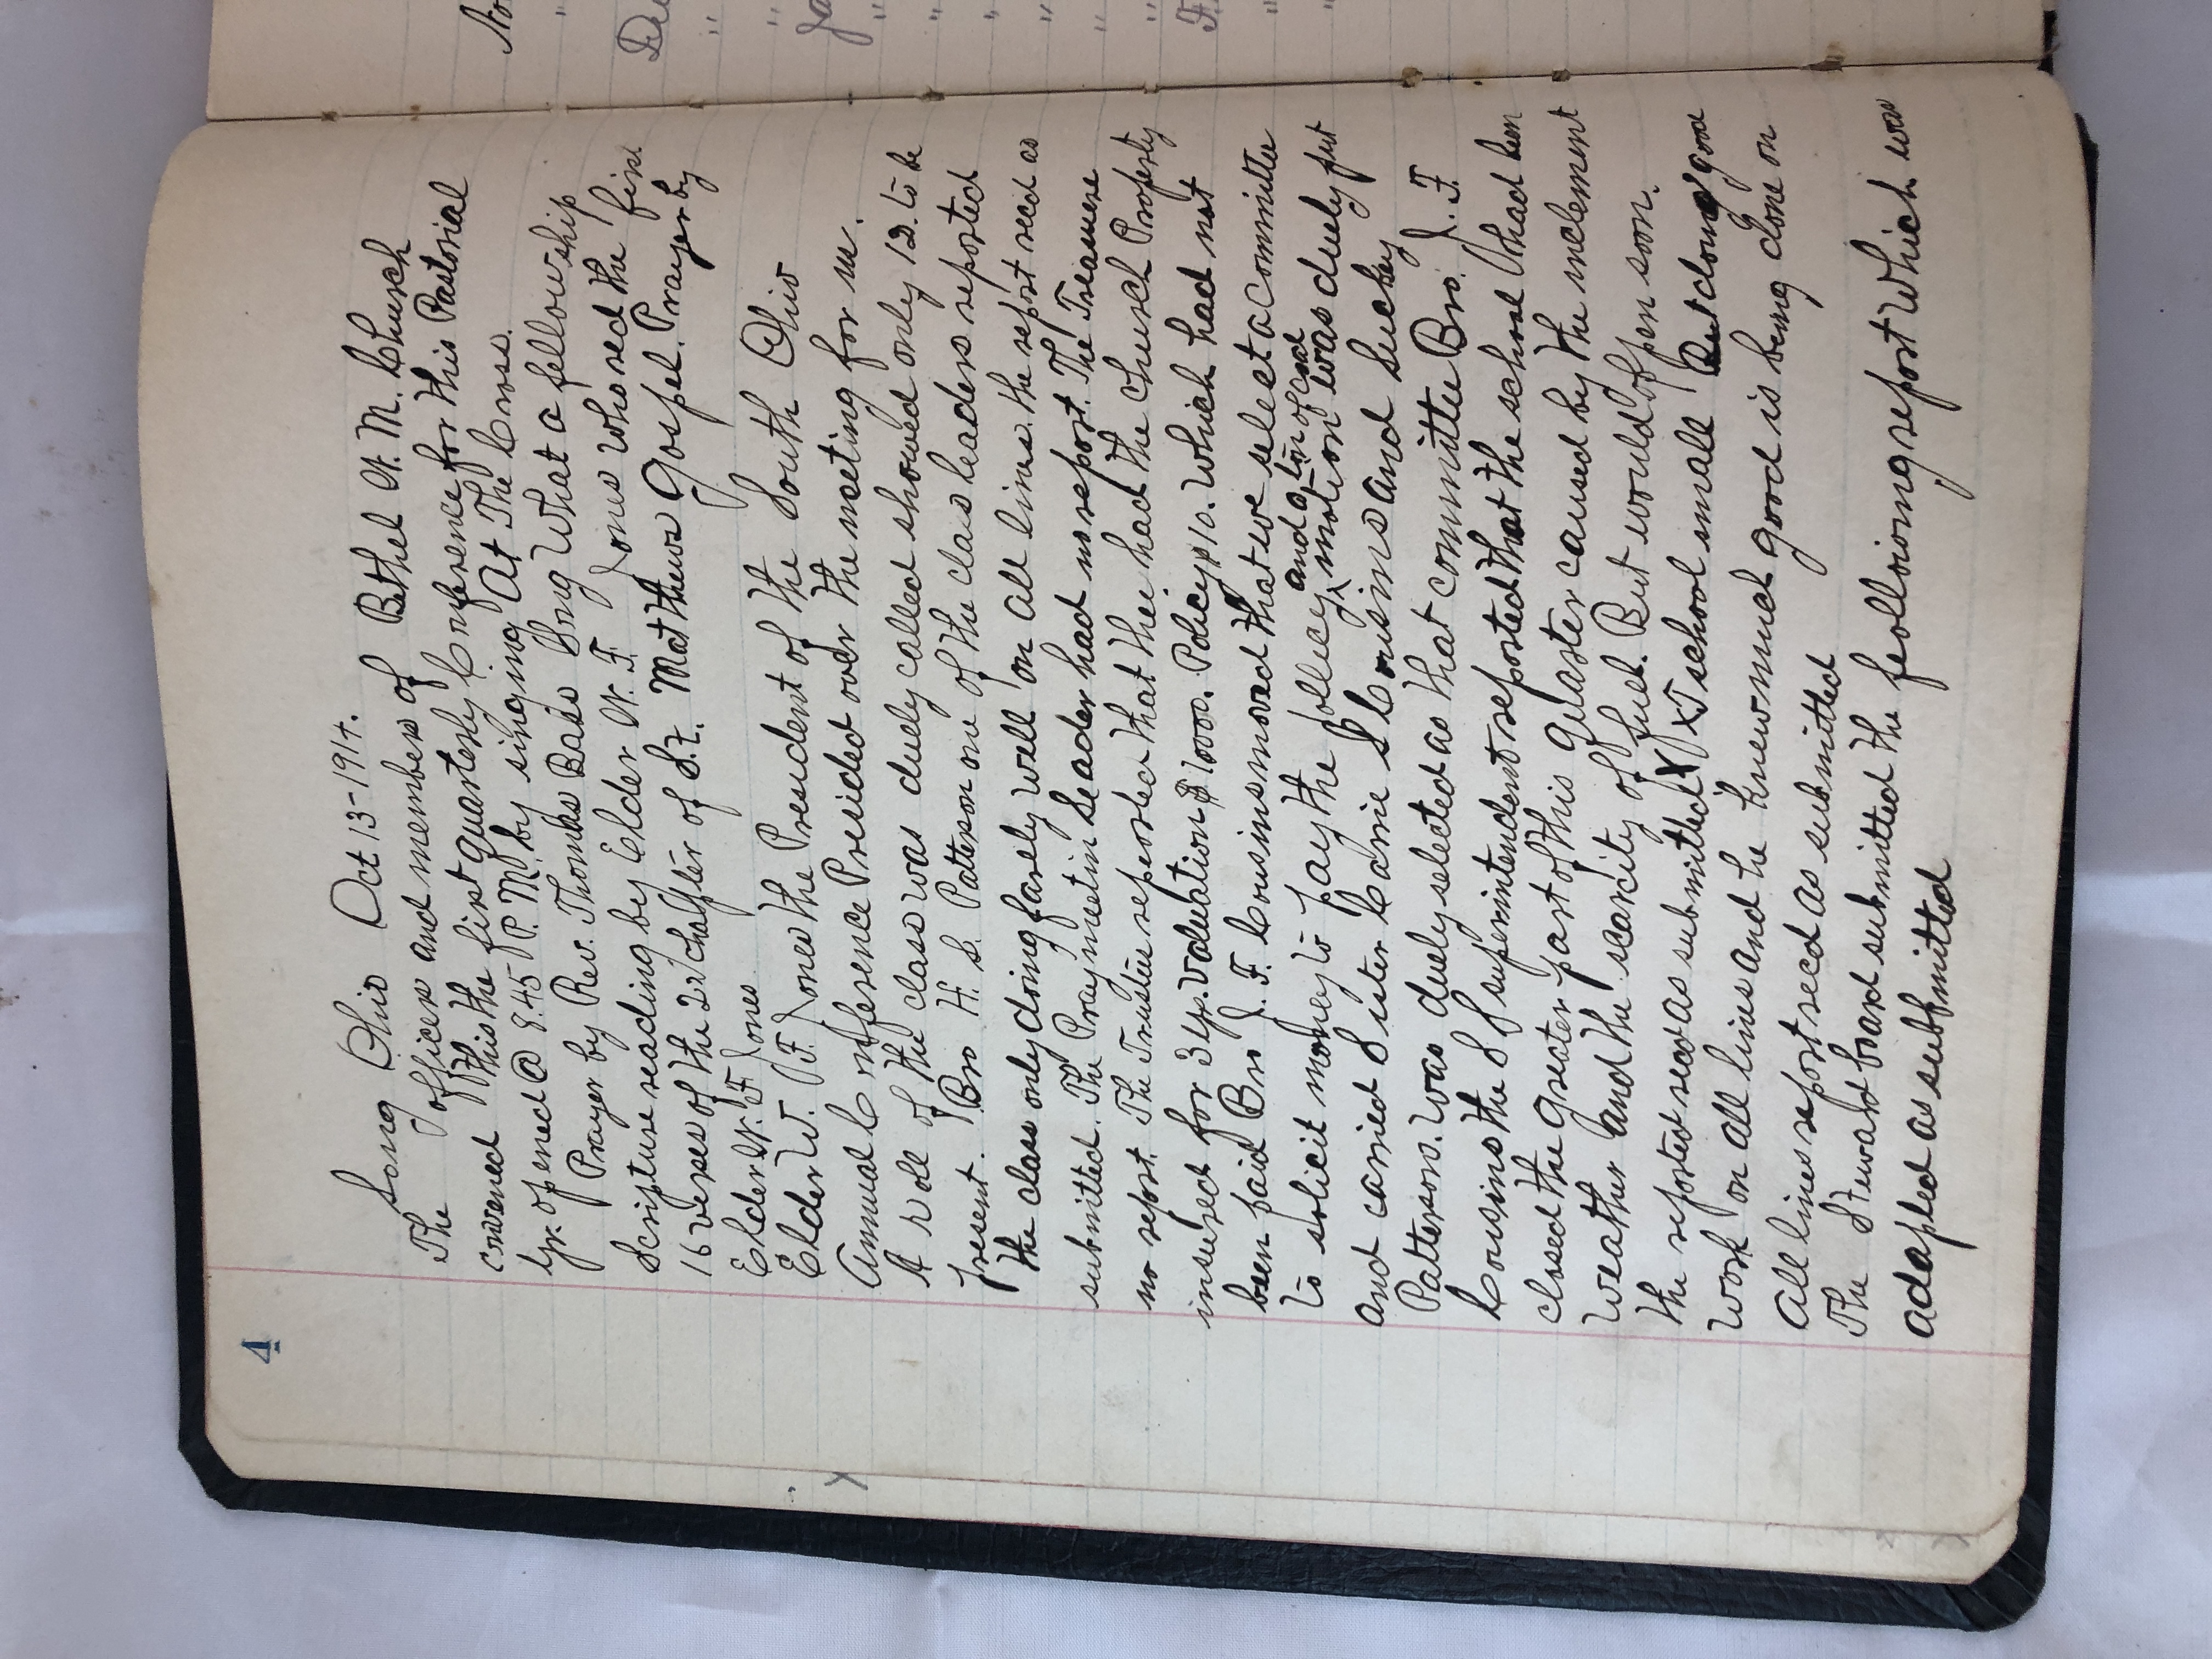 4
Long Ohio Oct 13-1914.
The officers and members of Bethel W. M. Church
convened this the first quarterly Conference for this Pastorial
Yr. opened @ 8.45 P. M. by singing At The Cross.
Prayer by Rev. Thomas Bass Song What a fellowship
Scripture reading by Elder W. F. Jones who red the first
16 verses of the 22 chapter of S.t. Matthews Gospel. Prayer by
Elder W. F Jones
Elder W. F. Jones the President of the South Ohio
Annual Conference Presided over the meeting for us.
A roll of the class was duely called showed only 12. to be
present. Bro H. S. Patterson one of the class leaders reported
the class only doing farely well on all lines. the report recd as
submitted. The Praymeetin Leader had no report. The Treasure
no report. The Trustees repeorted that thee had the church Property
insured for 3 yr. valuation $ 1000. Policy $10. which had not
been paid Bro J. F. Cousins moved that we select a committee
and a ton of coal
to solicit money to pay the pollecy, motion was duely put
and carried Sister Carrie S Cousins and Luckey
Patterson. was duely selected as that committee Bro. J. F.
Cousins the S S superintendent reported that the school had been
closed the greater part of this quarter caused by the inclement
weather and the scarcity of fuel. But would oppen soon.
the reported recd as submitted X X T school small But doing good
work on all lines and he knew much good is being done on
all lines report recd as submitted
The Steward board submitted the feolloiomg report which was
adapted as subbmitted